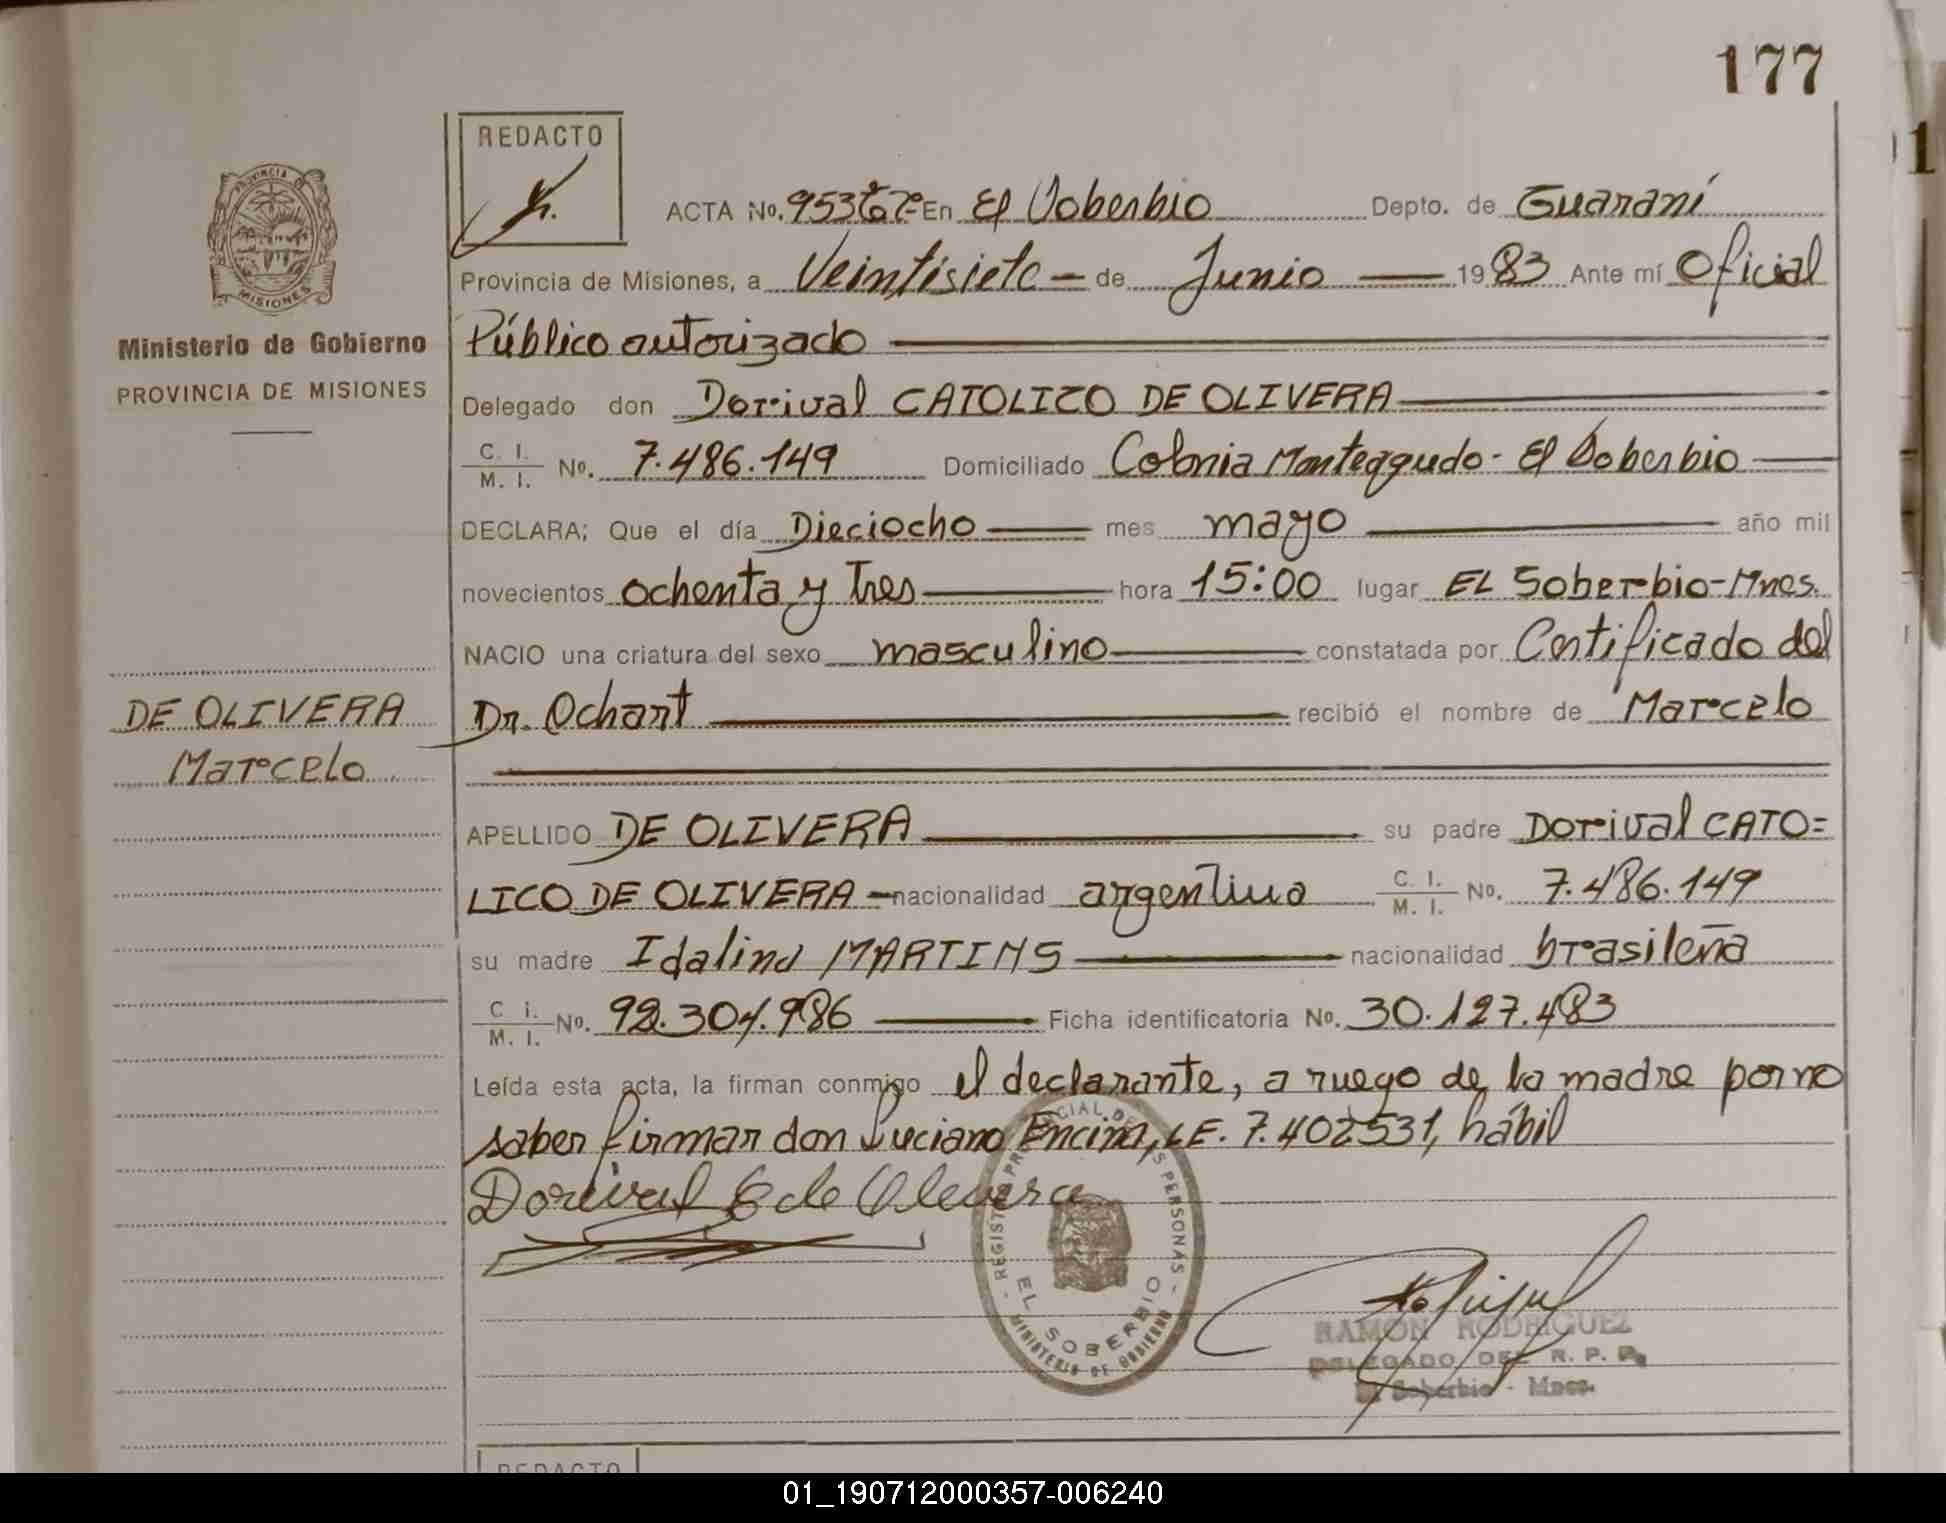 177
REDACTO
PROVINCIA DE
MISIONES
Ministerio de Gobierno
PROVINCIA DE MISIONES
DE OLIVERA
Marcelo
ACTA No. 953 En El Soberbio Depto. de Guaraní
Provincia de Misiones, a Veintisiete - de Junio — 1983 Ante mí Oficial
Público autorizado
Delegado don Dorival CATOLICO DE OLIVERA
C. I. / M. I. No. 7.486.149 Domiciliado Colonia Monteagudo - El Soberbio
DECLARA; Que el día Dieciocho — mes mayo — año mil
novecientos ochenta y Tres — hora 15:00 lugar EL Soberbio-Mnes.
NACIO una criatura del sexo masculino — constatada por Certificado del
Dr. Ochant — recibió el nombre de Marcelo
APELLIDO DE OLIVERA — su padre Dorival CATO=
LICO DE OLIVERA - nacionalidad argentina C. I. / M. I. No. 7.486.149
su madre Idalina MARTINS — nacionalidad brasileña
C. I. / M. I. No. 92.304.986 — Ficha identificatoria No. 30.127.483
Leída esta acta, la firman conmigo el declarante, a ruego de la madre por no
saber firmar don Luciano Encina, L.E. 7.402531, hábil
Dorival C de Olevera
REGISTRO PROVINCIAL DE LAS PERSONAS
EL SOBERBIO
MINISTERIO DE GOBIERNO
RAMON RODRIGUEZ
DELEGADO DEL R. P. P.
El Soberbio - Mnes.
REDACTO
01_190712000357-006240